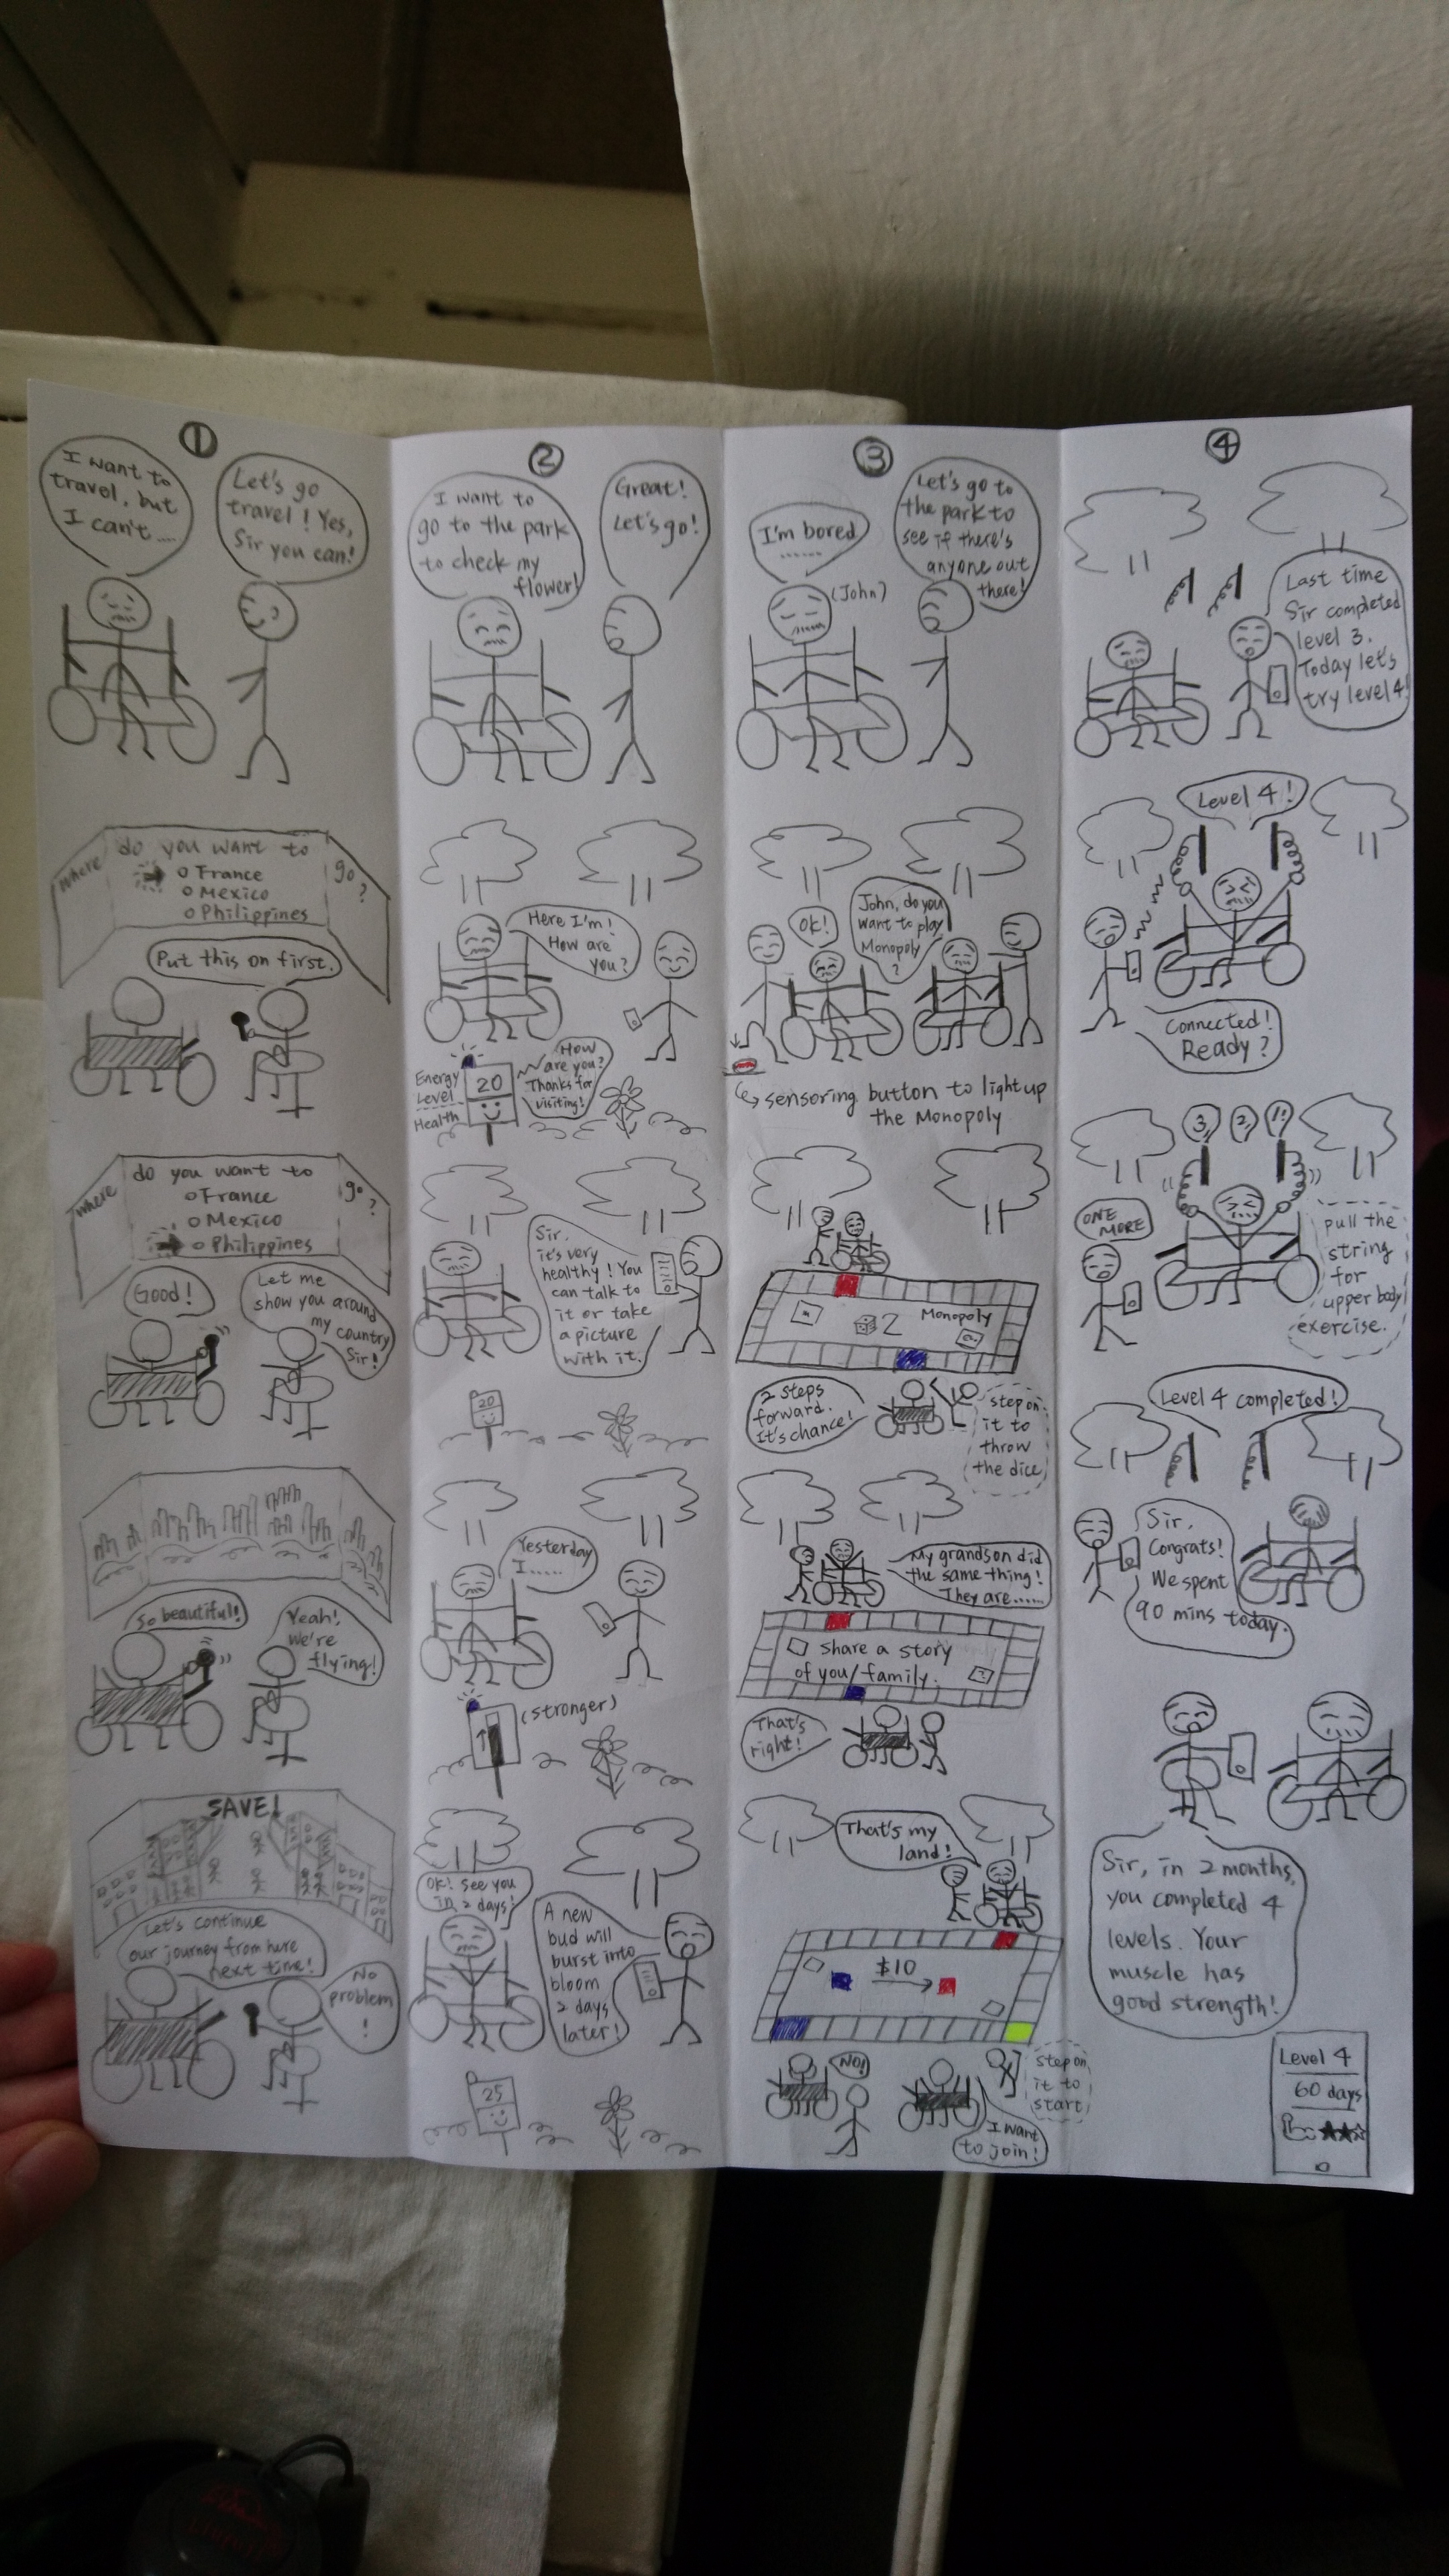 ①
I want to
travel, but
I can't....
Let's go
travel! Yes,
Sir you can!
Where do you want to go?
France
Mexico
Philippines
Put this on first.
Where do you want to go?
France
Mexico
Philippines
Good!
Let me
show you around
my country
Sir!
So beautiful!
Yeah!
We're
flying!
SAVE!
Let's continue
our journey from here
next time!
No
problem
!
②
I want to
go to the park
to check my
flower!
Great!
Let's go!
Here I'm!
How are
you?
Energy
Level
Health
20
How
are you?
Thanks for
visiting!
Sir,
it's very
healthy! You
can talk to
it or take
a picture
with it.
20
Yesterday
I......
(stronger)
OK! See you
in 2 days!
A new
bud will
burst into
bloom
2 days
later!
25
③
I'm bored
......
(John)
Let's go to
the park to
see if there's
anyone out
there!
OK!
John, do you
want to play
Monopoly
?
sensoring button to light up
the Monopoly
2
Monopoly
2 steps
forward.
It's chance!
step on
it to
throw
the dice
My grandson did
the same thing!
They are......
share a story
of you/family.
That's
right!
That's my
land!
$10
NO!
I want
to join!
step on
it to
start
④
Last time
Sir completed
level 3.
Today let's
try level 4!
Level 4!
Connected!
Ready?
3, 2, 1!
ONE
MORE
pull the
string
for
upper body
exercise.
Level 4 completed!
Sir,
Congrats!
We spent
90 mins today.
Sir, in 2 months,
you completed 4
levels. Your
muscle has
good strength!
Level 4
60 days